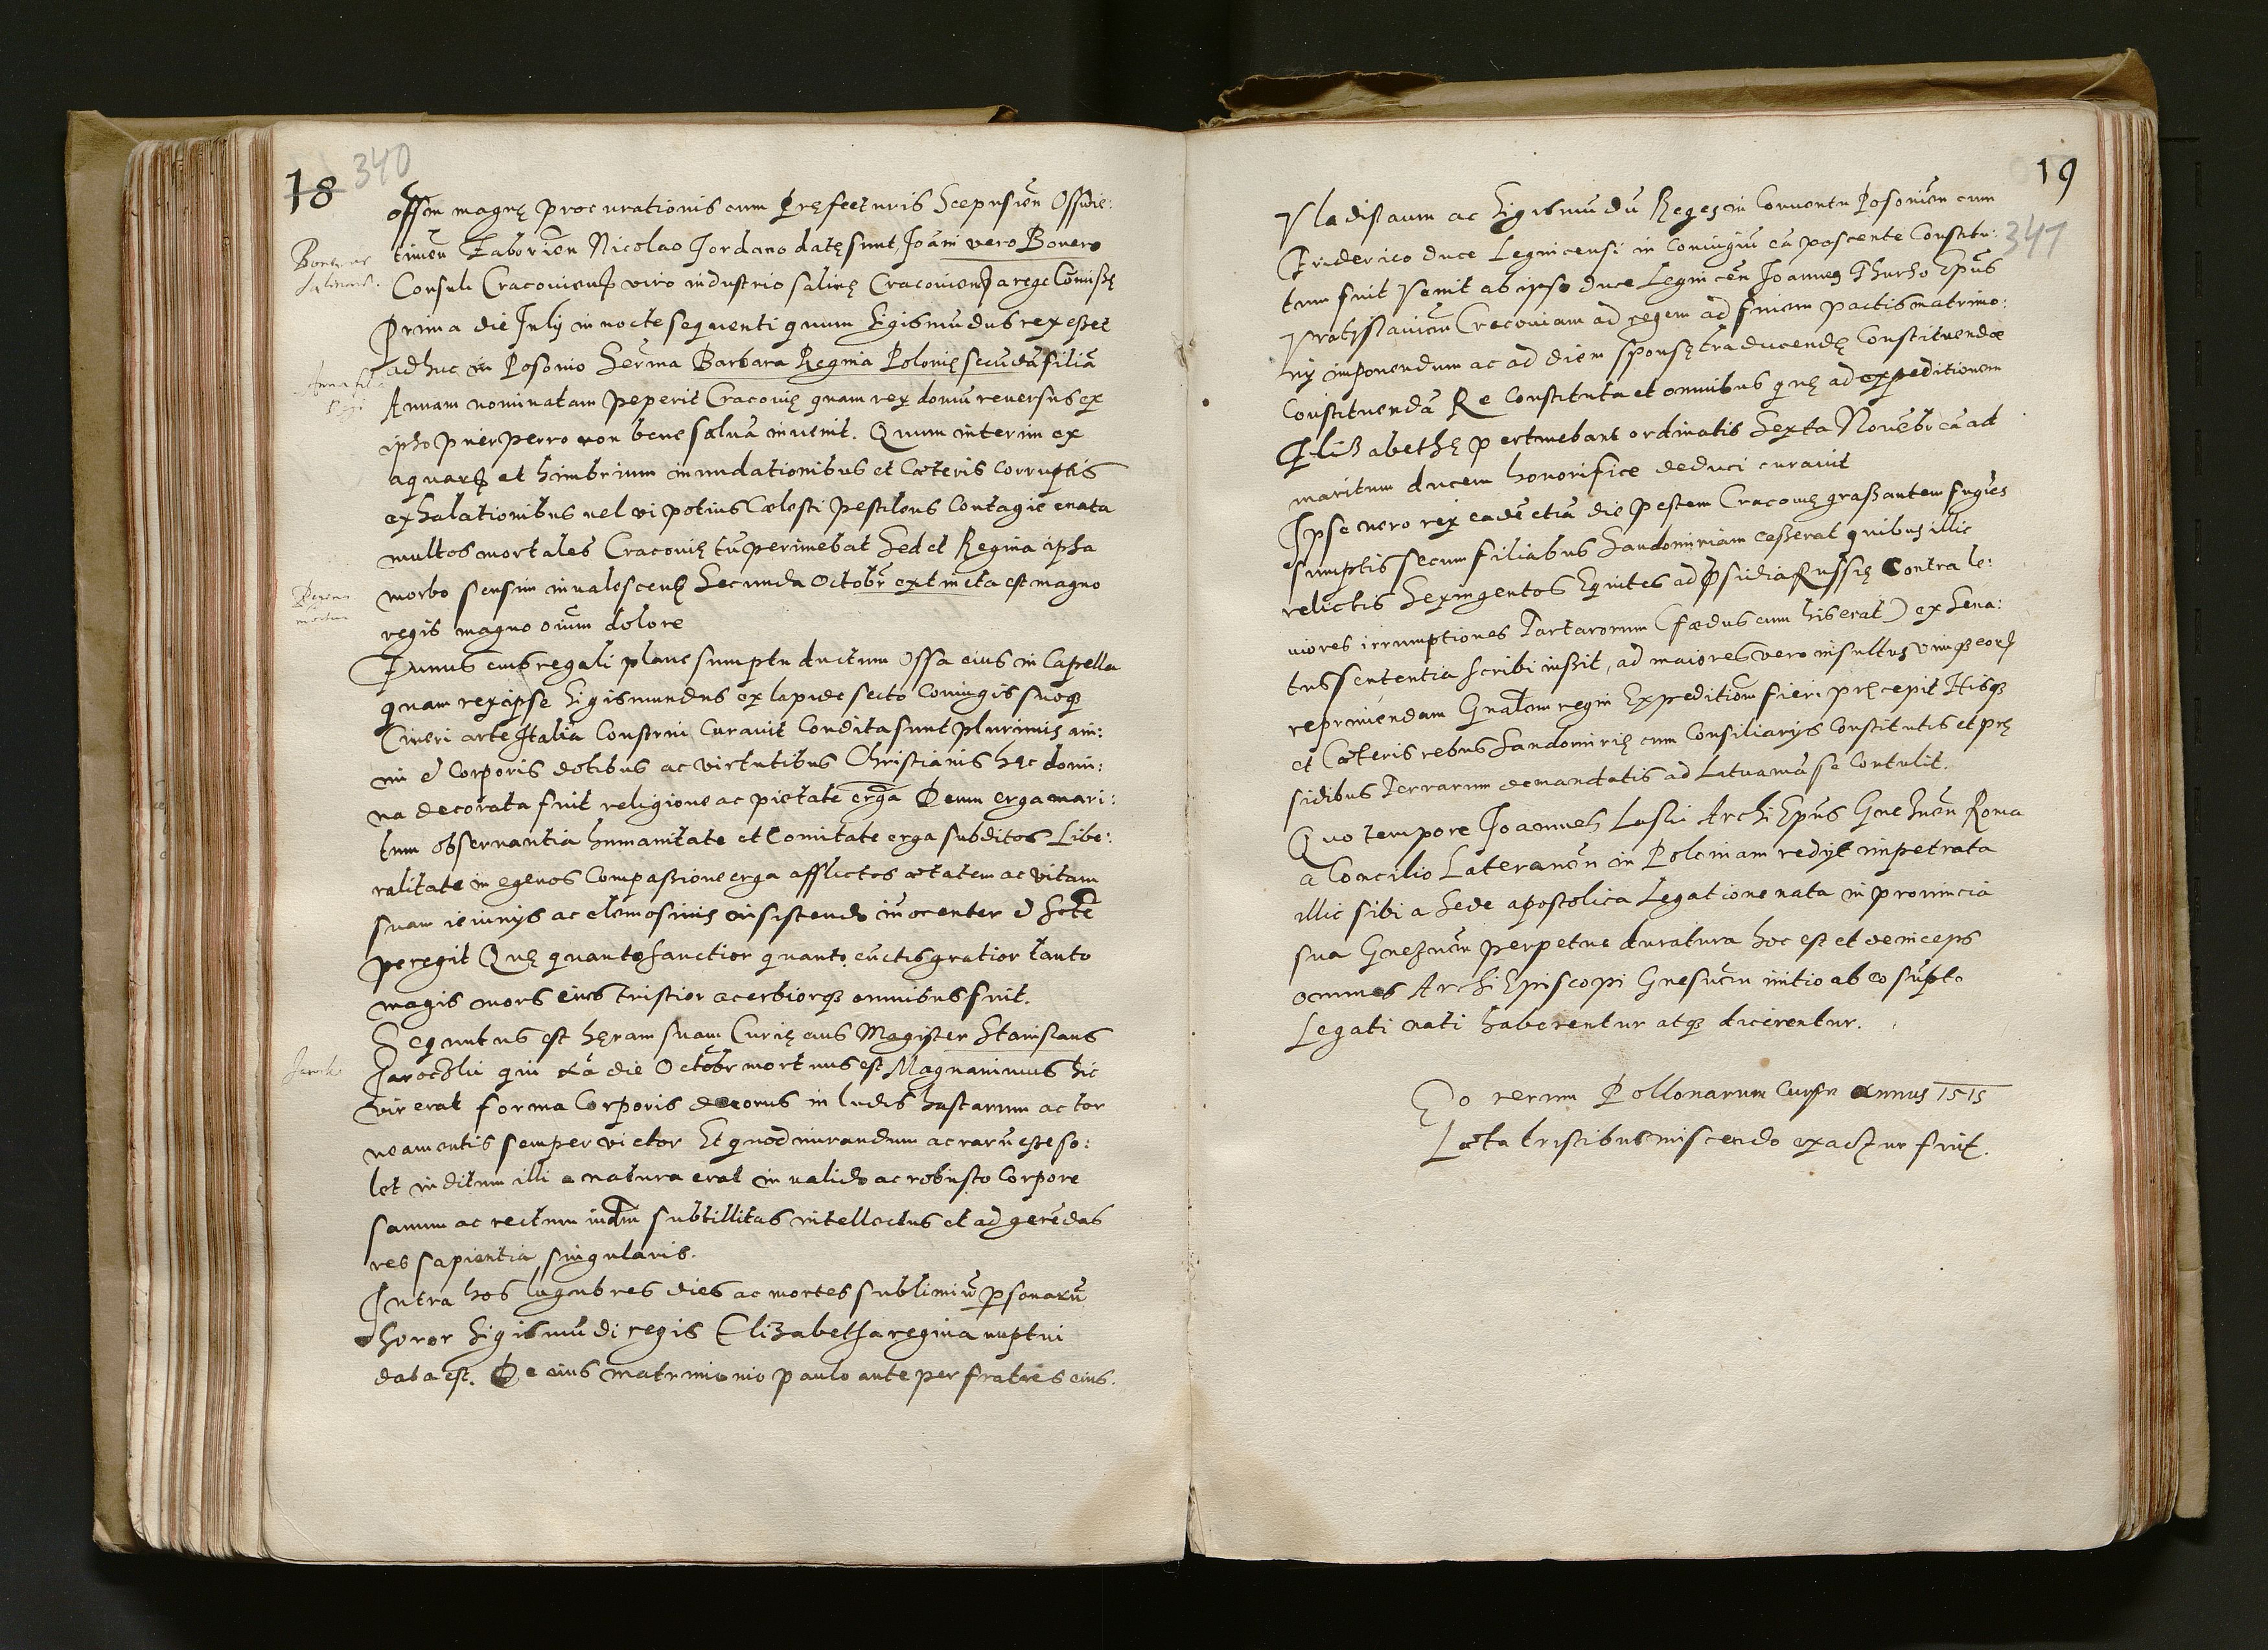 18 340
offm magnę procurationis cum Pręfecturis Scepusien̄ Ossvie:
timen̄ Zaborien̄ Nicolao Jordano datę sunt, Joāni vero Bonero
Consuli Cracoviens viro industrio salinę Cracoviens a rege Comißę
Prima die Julij in nocte sequenti quum Sigismūdus rex eßet
adhuc in Posonio Serma Barbara Regina Polonię secūdā filiā
Annam nominatam peperit Cracovię quam rex domū reversus ex
ipso puerperro non bene salvā invenit. Quum interim ex
aquarꝝ et himbrium inundationibus et Cæteris corruptis
exhalationibus vel vi potius Cælesti pestilens Contagio enata
multos mortales Cracovię tū perimebat Sed et Regina ipsa
morbo sensim invalescens Secunda Octobr̄ extincta est magno
regis magno oiūm dolore
Funus eius regali plane sumptu ductum Ossa eius in Capella
quam rex ipse Sigismundus ex lapide secto Coniugis suoqꝫ
Cineri arte Italia Construi Curavit Condita sunt plurimis ani:
mi & Corporis dotibus ac virtutibus Christianis hęc domi:
na decorata fuit religione ac pietate erga Deum erga mari:
tum observantia humanitate et Comitate erga subditos Libe:
ralitate in egenos Compaßione erga afflictos ætatem ac vitam
suam ieiunijs ac elemosinis insistendo inocenter & Scte
peregit Quę quanto sanctior quanto cūctis gratior tanto
magis mors eius tristior acerbiorqꝫ omnibus fuit.
Sequutus est hęram suam Curię eius Magister Stanislaus
Jarocki qui xā die Octobr̄ mortuus est Magnanimus hic
vir erat forma Corporis decorus in ludis hastarum ac tor
neamentis semper victor Et quod mirandum ac rarū eße so:
let inditum illi a natura erat in valido ac robusto Corpore
sanum ac rectum iudm subtillitas intellectus et ad gerēdas
res sapientia singularis.
Intra hos lugubres dies ac mortes sublimiū psonarū
Soror Sigismūdi regis Elizabetha regina nuptui
data est. De eius matrimonio paulo ante per fratres eius.
Anna fili
Regina
mortua
Jarocki
19
341
Vladislaum ac Sigismūdū Reges in Conventu Posonien̄ cum
Friderico duce Legnicensi in Coniugiū eā poscente Constitu:
tum fuit Venit ab ipso duce Legnicen̄ Joannes Thurso Epūs
Vratislavien̄ Cracoviam ad regem ad finem pactis matrimo:
nij imponendum ac ad diem sponsę traducendę Constituendæ
Constituendā Re Constituta et omnibus quę ad expeditionem
Elißabethę pertinebant ordinatis Sexta Novēbr̄ eā ad
maritum ducem honorifice deduci curavit
Ipse vero rex eadē etiā die pestem Cracovię graßantem fugiēs
sumptis secum filiabus Sandomiriam ceßerat quibus illic
relictis Sexingentos Equites ad Psidia Russię Contra le:
viores irrumptiones Tartarorum (fædus cum hiserat) ex Sena:
tus sententia scribi iußit, ad maiores vero insultus vimqꝫ eorꝝ
reprimendam Gnalem regni Expeditiom fieri pręcepit Hisqꝫ
et Cæteris rebus Sandomirię cum Consiliarijs Constitutis et prę
sidibus Terrarum demandatis ad Lituaniā se Contulit.
Quo tempore Joannes Laski Archi Epūs Gneznen̄ Roma
a Concilio Lateranen̄ in Poloniam redijt impetrata
illic sibi a Sede apostolica Legatione nata in provincia
sua Gneznen̄ perpetue duratura hoc est et deinceps
omnes Archi Episcopi Gnesnen̄ initio ab eo sūpto
Legati nati haberentur atqꝫ dicerentur.
Eo rerum Pollonarum Cursu annus 1515
Læta tristibus miscendo exactur fuit.